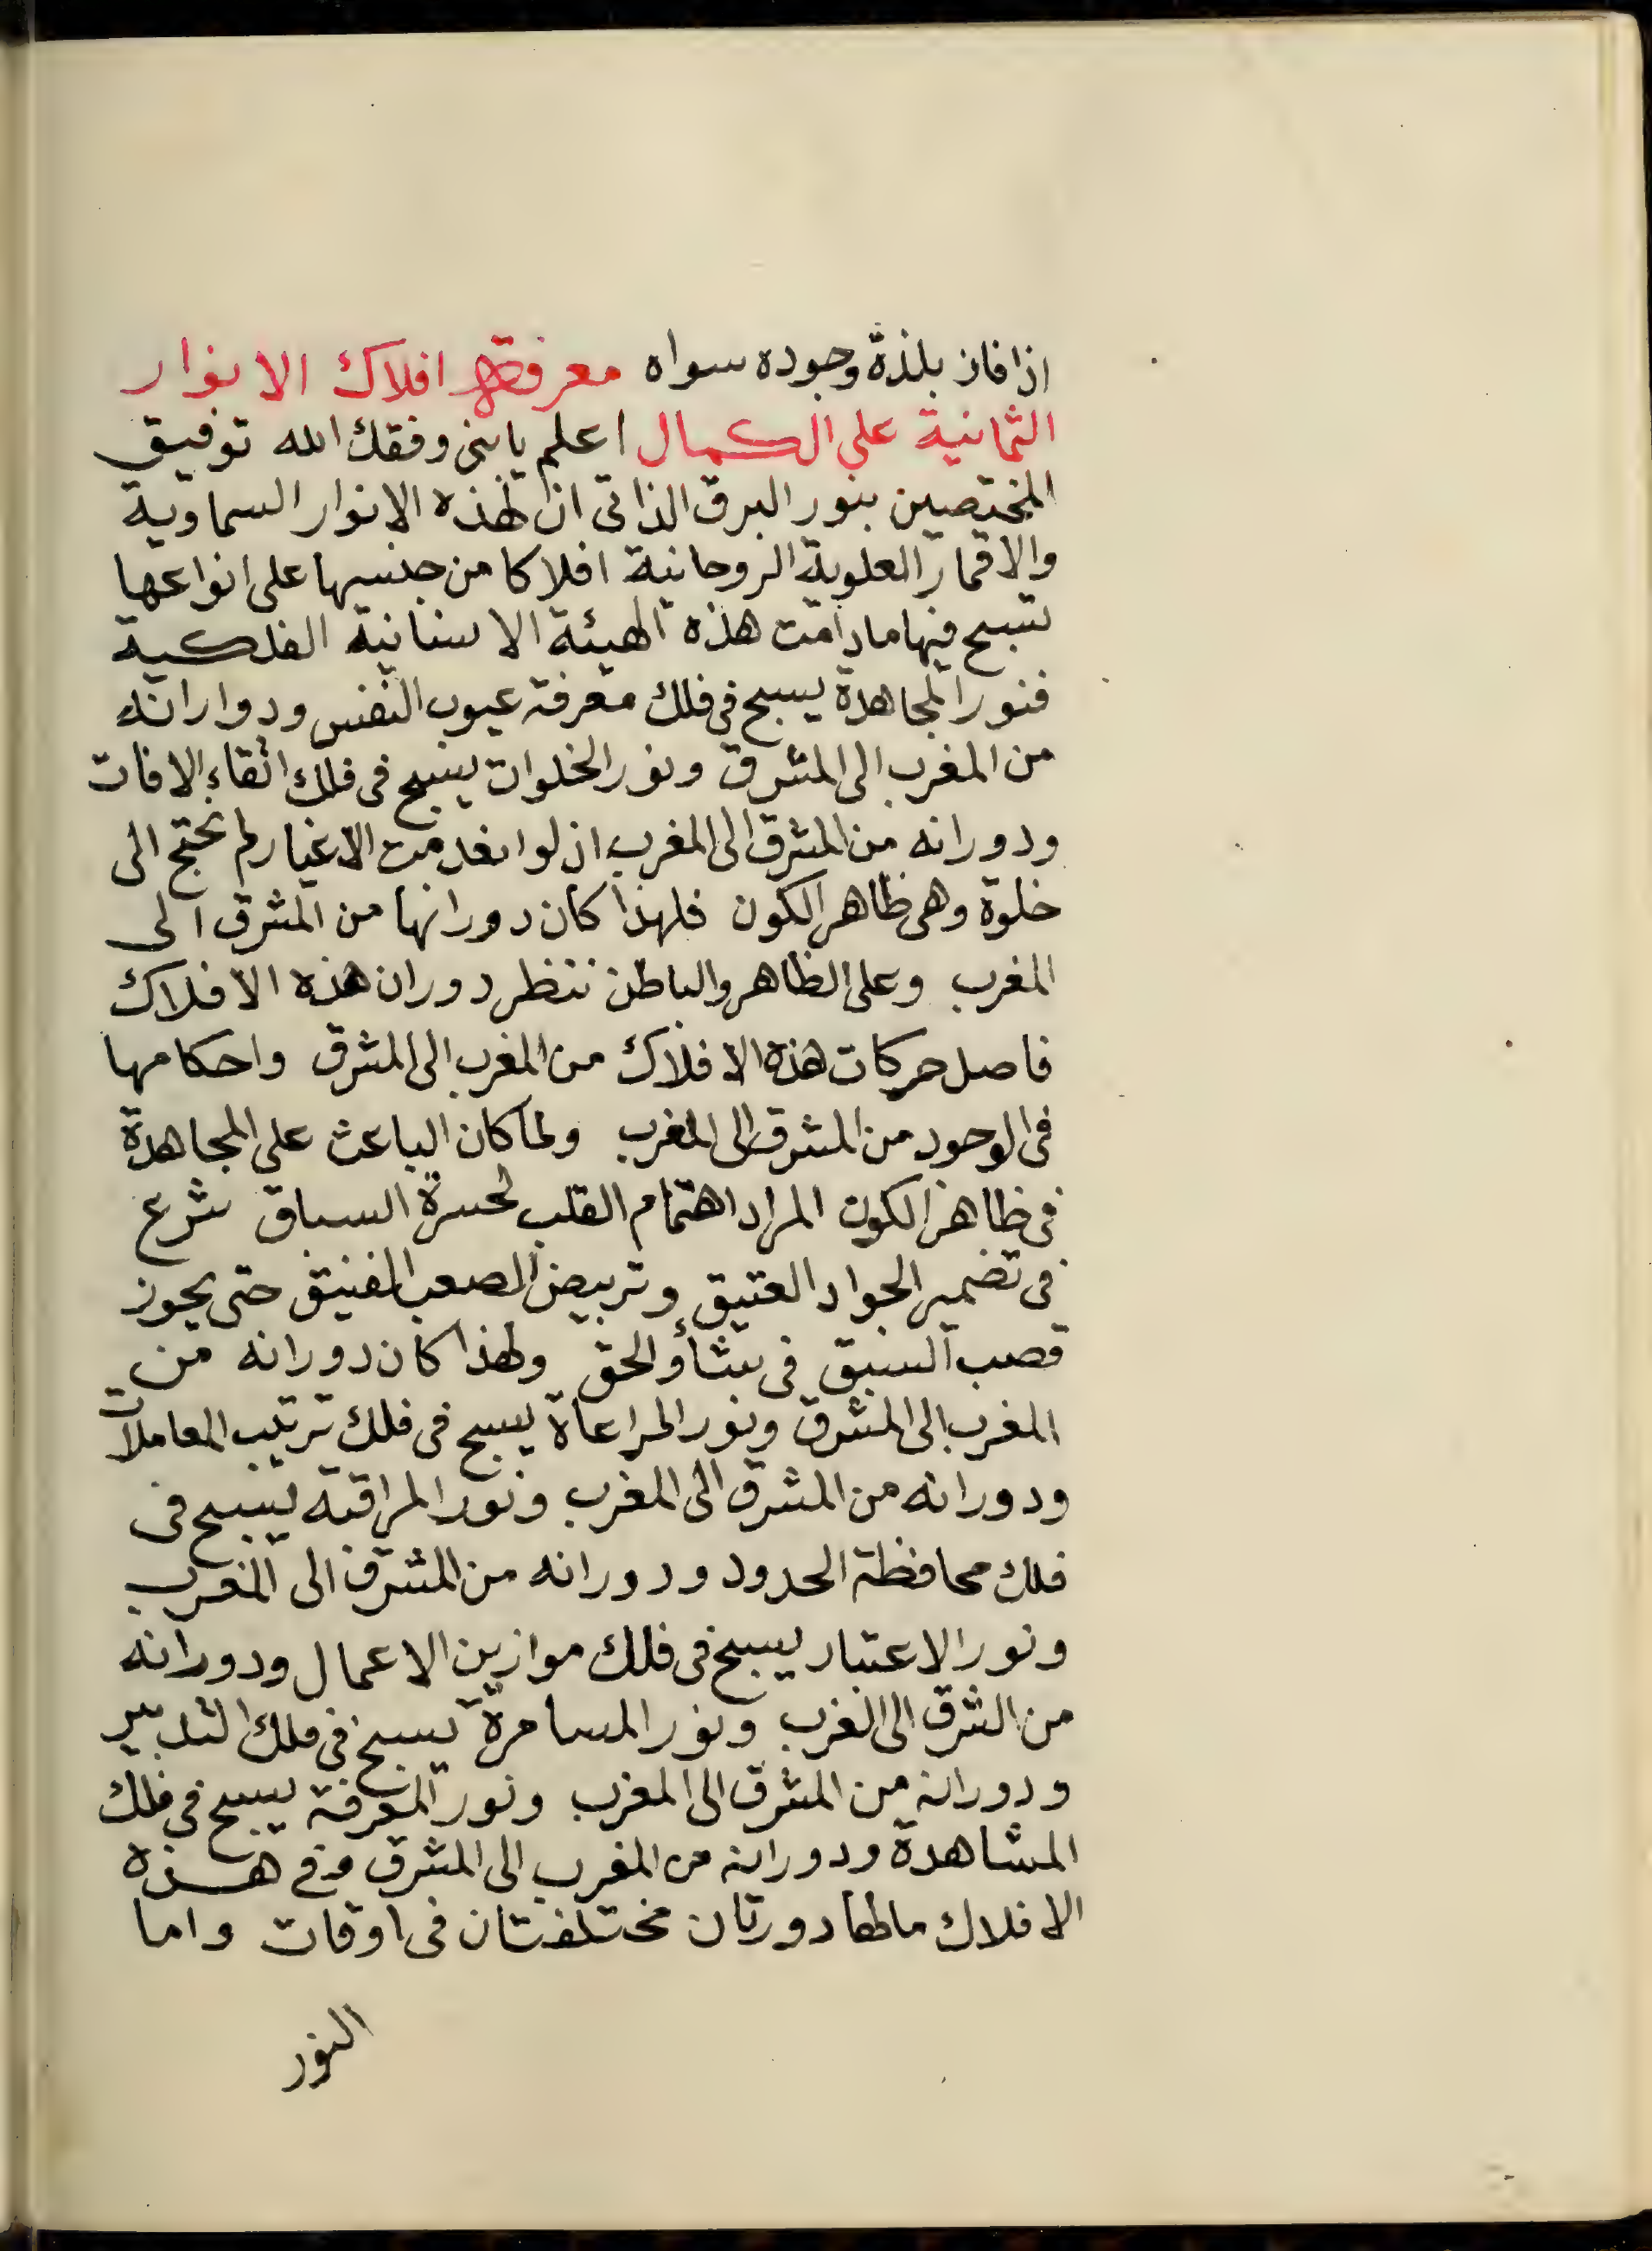 اذا فاز بلذة وجوده سواه معرفة افلاك الانوار
الثمانية على الكمال اعلم يا بني وفقك الله توفيق
المختصين بنور البرق الذاتي ان لهذه الانوار السماوية
والاقمار العلوية الروحانية افلاكا من جنسها على انواعها
تسبح فيها ما دامت هذه الهيئة الانسانية الفلكية
فنور المجاهدة يسبح في فلك معرفة عيوب النفس ودوارانه
من المغرب الى المشرق ونور الخلوات يسبح في فلك اتقاء الافات
ودورانه من المشرق الى المغرب اذ لو انعدمت الاغيار لم تحتج الى
خلوة وهي ظاهر الكون فلهذا كان دورانها من المشرق الى
المغرب وعلى الظاهر والباطن ننظر دوران هذه الافلاك
فاصل حركات هذه الافلاك من المغرب الى المشرق واحكامها
في الوجود من المشرق الى المغرب ولما كان الباعث على المجاهدة
في ظاهر الكون المراد اهتمام القلب لحسرة السباق شرع
في تضمير الجواد العتيق وتربيض الصعب الفنيق حتى يحوز
قصب السبق في شأو الحق ولهذا كان دورانه من
المغرب الى المشرق ونور المراعاة يسبح في فلك ترتيب المعاملات
ودورانه من المشرق الى المغرب ونور المراقبة يسبح في
فلك محافظة الحدود ودورانه من المشرق الى المغرب
ونور الاعتبار يسبح في فلك موازين الاعمال ودورانه
من الشرق الى الغرب ونور المسامرة يسبح في فلك التدبير
ودورانه من المشرق الى المغرب ونور المعرفة يسبح في فلك
المشاهدة ودورانه من المغرب الى المشرق وفي هذه
الافلاك ما لها دورتان مختلفتان في اوقات واما
النور